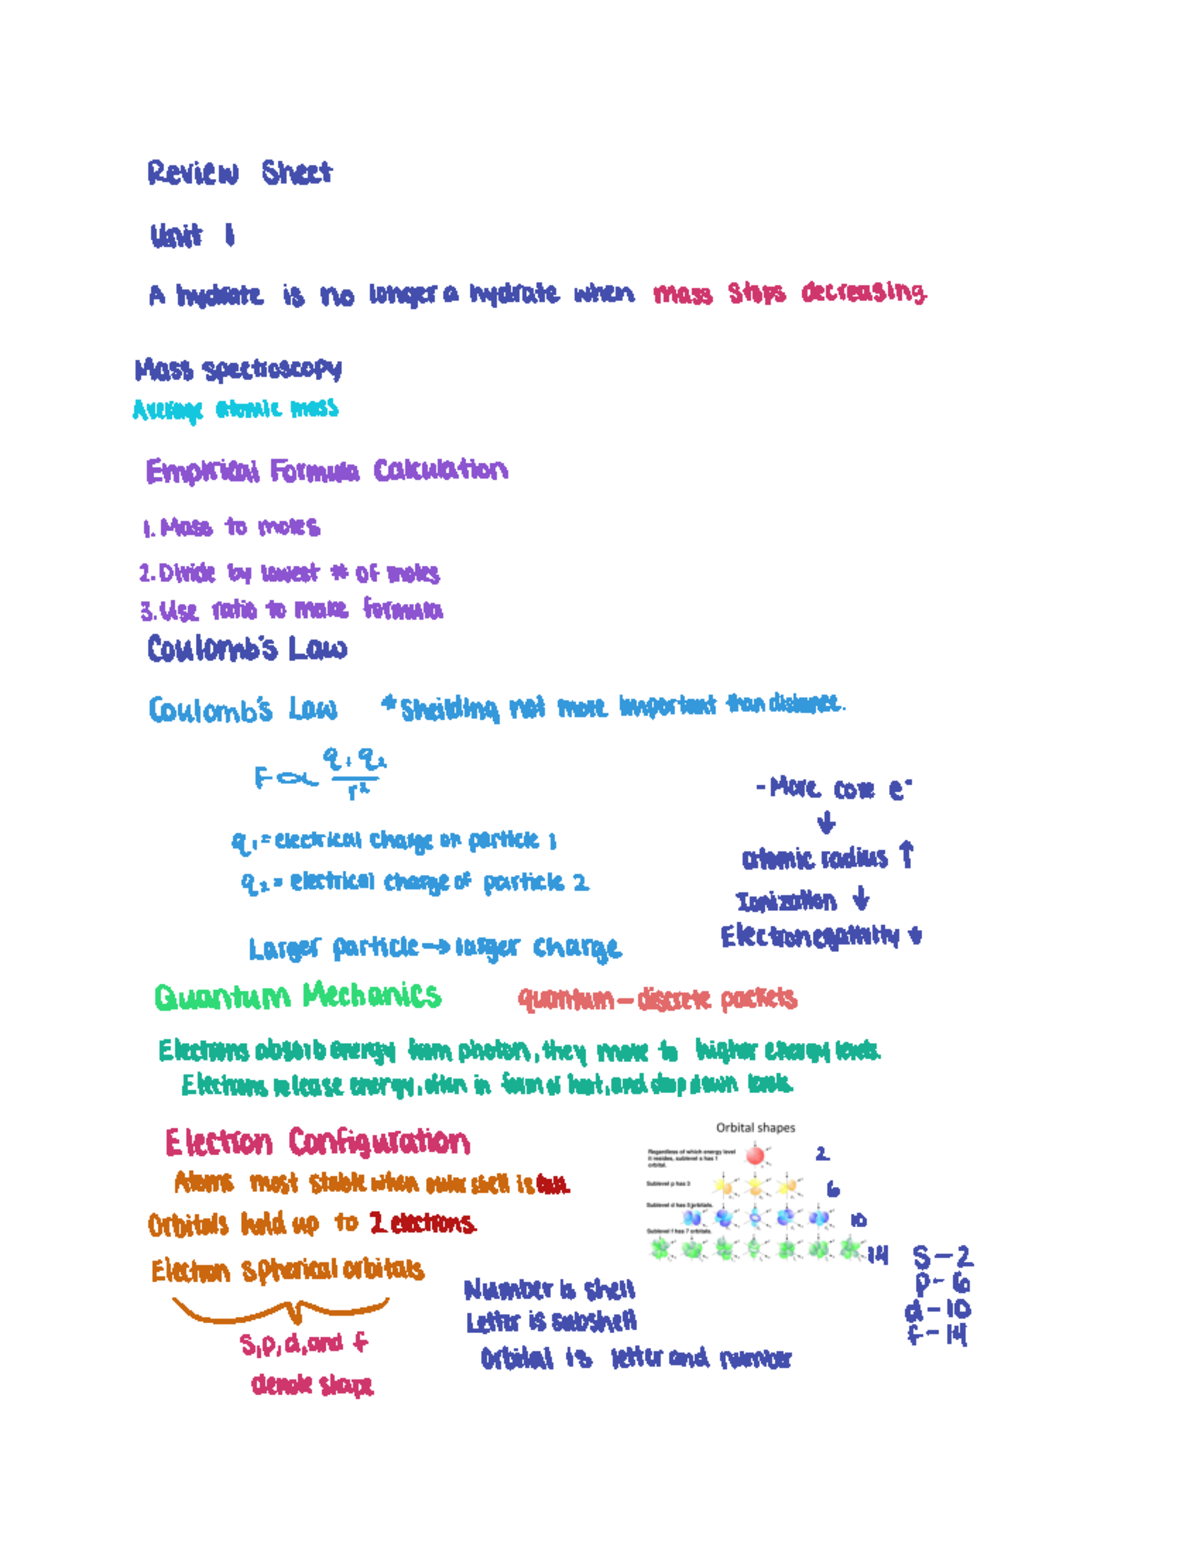 Review Sheet
Unit 1
A hydrate is no longer a hydrate when mass stops decreasing
Mass spectroscopy
Average atomic mass
Empirical Formula Calculation
1. Mass to moles
2. Divide by lowest # of moles
3. Use ratio to make formula
Coulomb's Law
Coulomb's Law * Sheilding not more important than distance.
F ∝ q1 q2 / r²
q1 = electrical charge on particle 1
q2 = electrical charge of particle 2
Larger particle → larger charge
- More core e-
↓
atomic radius ↑
Ionization ↓
Electronegativity ↓
Quantum Mechanics quantum – discrete packets
Electrons absorb energy from photon, they move to higher energy levels.
Electrons release energy, often in form of heat, and drop down levels.
Electron Configuration
Atoms most stable when outer shell is full.
Orbitals hold up to 2 electrons.
Electron spherical orbitals
S, p, d, and f
denote shape
Orbital shapes
Regardless of which energy level
it resides, sublevel s has 1
orbital.
2
Sublevel p has 3
6
Sublevel d has 5 orbitals.
10
Sublevel f has 7 orbitals.
14
S – 2
p – 6
d – 10
f – 14
Number is shell
Letter is subshell
Orbital is letter and number